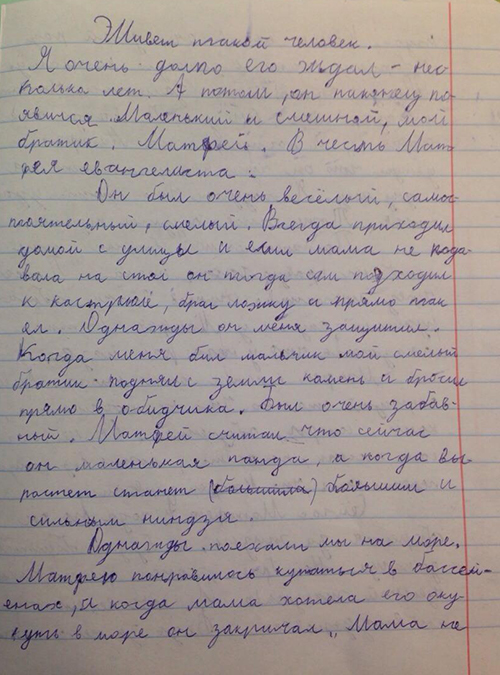 Живет такой человек.
Я очень долго его ждал - нес-
колько лет. А потом, он наконец по-
явился. Маленький и смешной, мой
братик. Матфей. В честь Мат-
фея евангелиста.
Он был очень весёлый, самос-
тоятельный, смелый. Всегда приходил
домой с улицы и если мама не пода-
вала на стол он тогда сам подходил
к кастрюле, брал ложку и прямо так
ел. Однажды он меня защитил.
Когда меня бил мальчик мой смелый
братик поднял с земли камень и бросил
прямо в обидчика. Был очень забав-
ный. Матфей считал что сейчас
он маленькая панда, а когда вы-
растет станет (большим) большим и
сильным ниндзя.
Однажды поехали мы на море.
Матфею понравилось купаться в бассей-
енах, и когда мама хотела его оку-
нуть в море он закричал, "Мама не